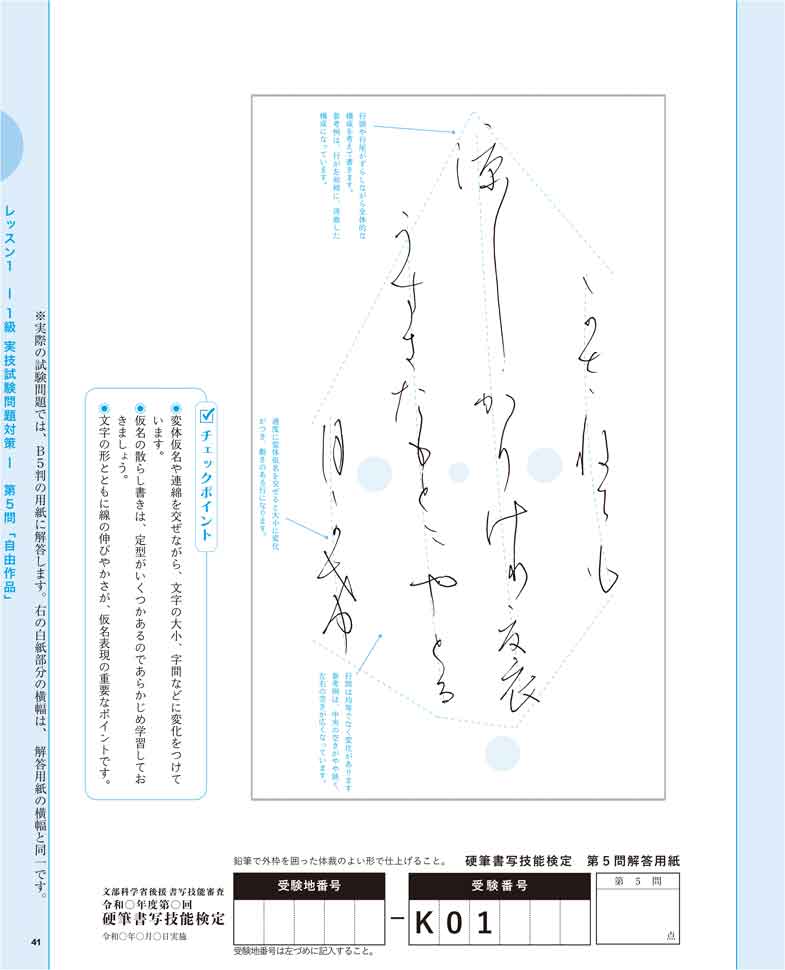 かさねても
涼しかりけり夏衣
うすきたもとにやとる
月可希
行頭や行尾がずらしながら全体的な
構成を考えて書きます。
参考例は、行が左右端に、清敷した
構成になっています。
適度に変体仮名を交ぜると大小に変化
がつき、動きのある行になります。
行間は均等でなく変化があります
参考例は、中央の空きがやや狭く、
左右の空きが広くなっています。
チェックポイント
変体仮名や連綿を交ぜながら、文字の大小、字間などに変化をつけて
います。
仮名の散らし書きは、定型がいくつかあるのであらかじめ学習してお
きましょう。
文字の形とともに線の伸びやかさが、仮名表現の重要なポイントです。
※実際の試験問題では、B5判の用紙に解答します。右の白紙部分の横幅は、解答用紙の横幅と同一です。
レッスン1 ー1級 実技試験問題対策ー 第5問「自由作品」
鉛筆で外枠を囲った体裁のよい形で仕上げること。 硬筆書写技能検定 第5問解答用紙
文部科学省後援 書写技能審査
令和〇年度第〇回
硬筆書写技能検定
令和〇年〇月〇日実施
受験地番号
受験番号
K01
第5問
点
受験地番号は左づめに記入すること。
41